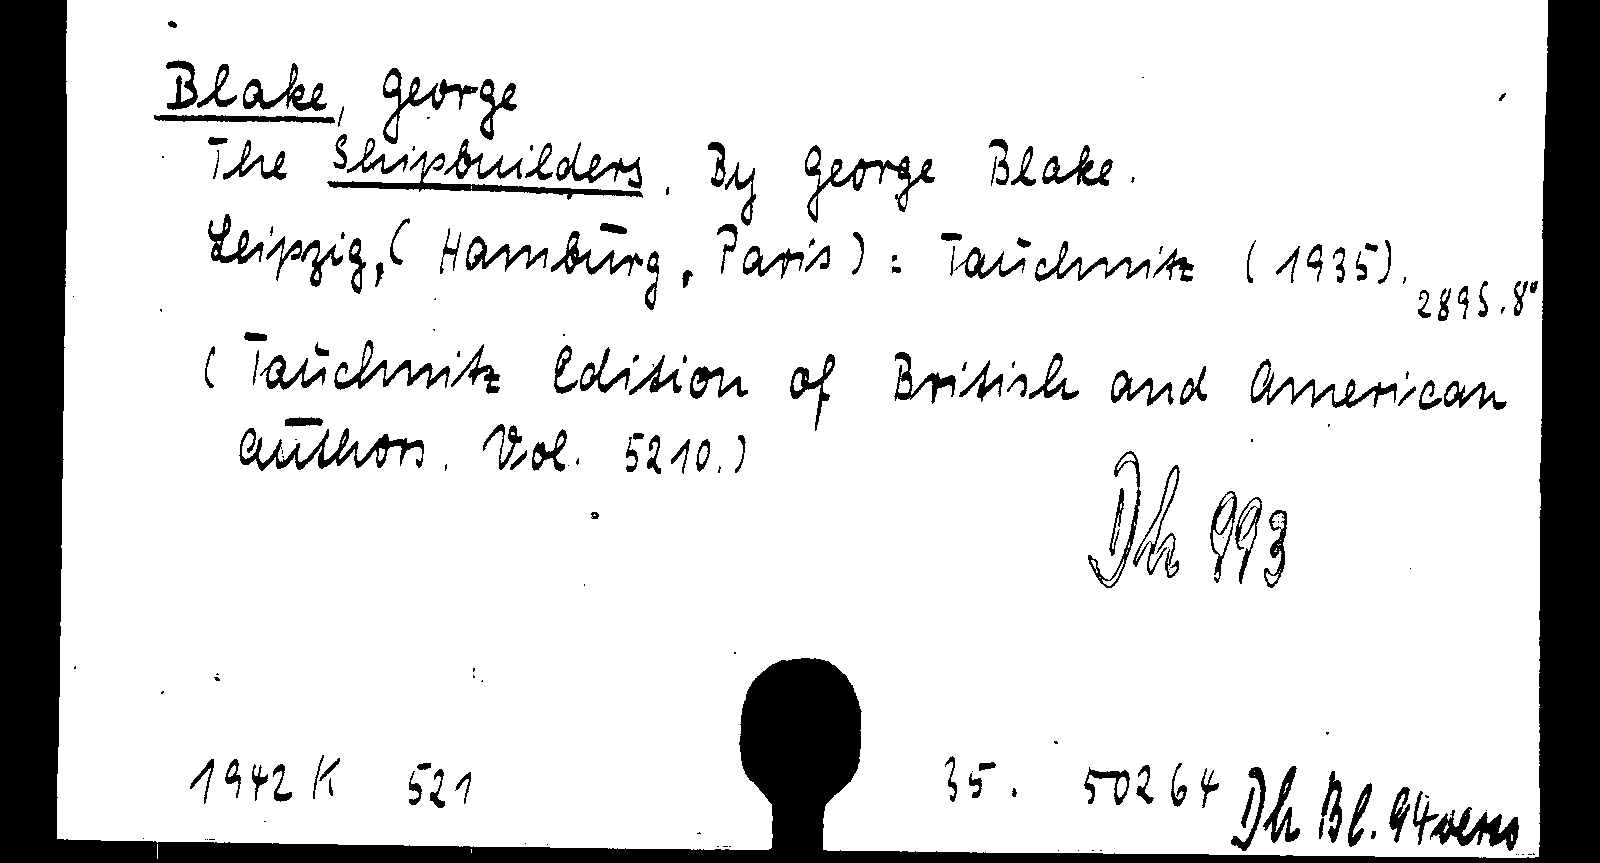 Blake, George
The Shipbuilders. By George Blake.
Leipzig, (Hamburg, Paris): Tauchnitz (1935). 289 S. 8°
(Tauchnitz Edition of British and American
Authors. Vol. 5210.)
Dk 993
1942 K 521 35. 50264 Dk Bl. 94 verso